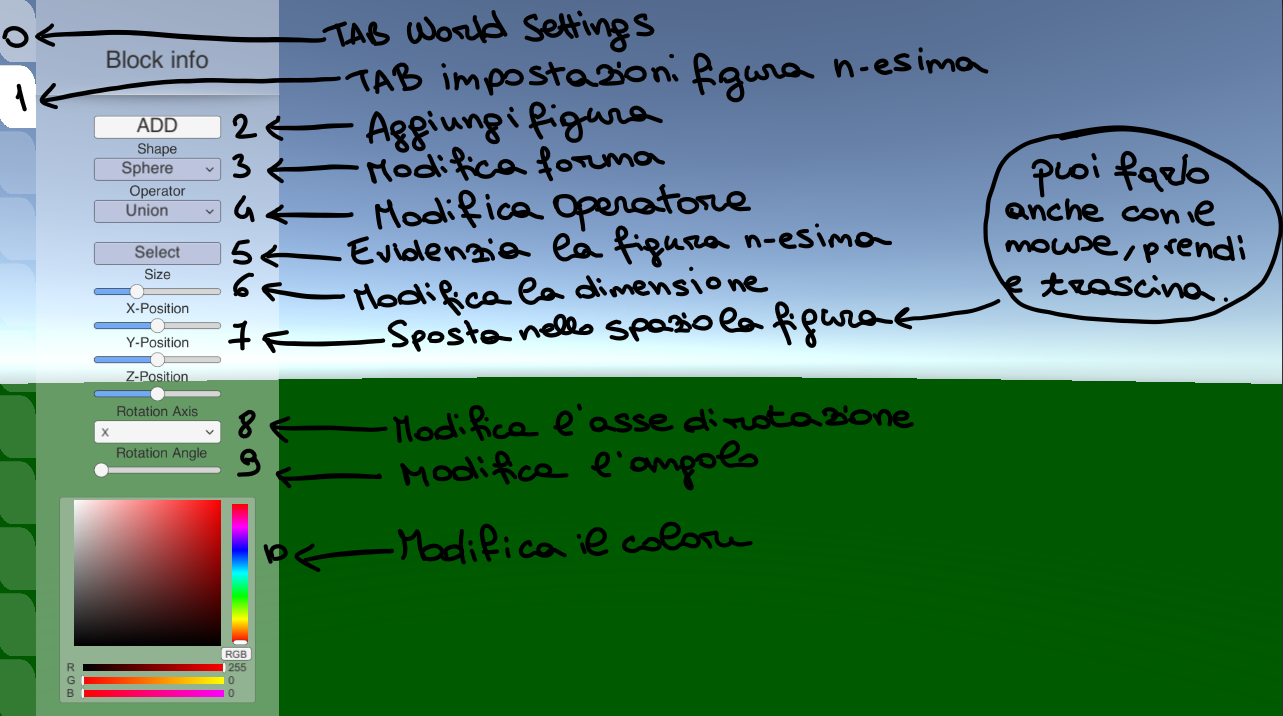 0 TAB World Settings
Block info
1 TAB impostazioni figura n-esima
ADD 2 Aggiungi figura
Shape
Sphere 3 Modifica forma
Operator
Union 4 Modifica Operatore
Select 5 Evidenzia la figura n-esima
Size
6 Modifica la dimensione
X-Position
7 Sposta nello spazio la figura
puoi farlo
anche con il
mouse, prendi
e trascina.
Y-Position
Z-Position
Rotation Axis
x 8 Modifica l'asse di rotazione
Rotation Angle
9 Modifica l'angolo
10 Modifica il colore
RGB
R 255
G 0
B 0